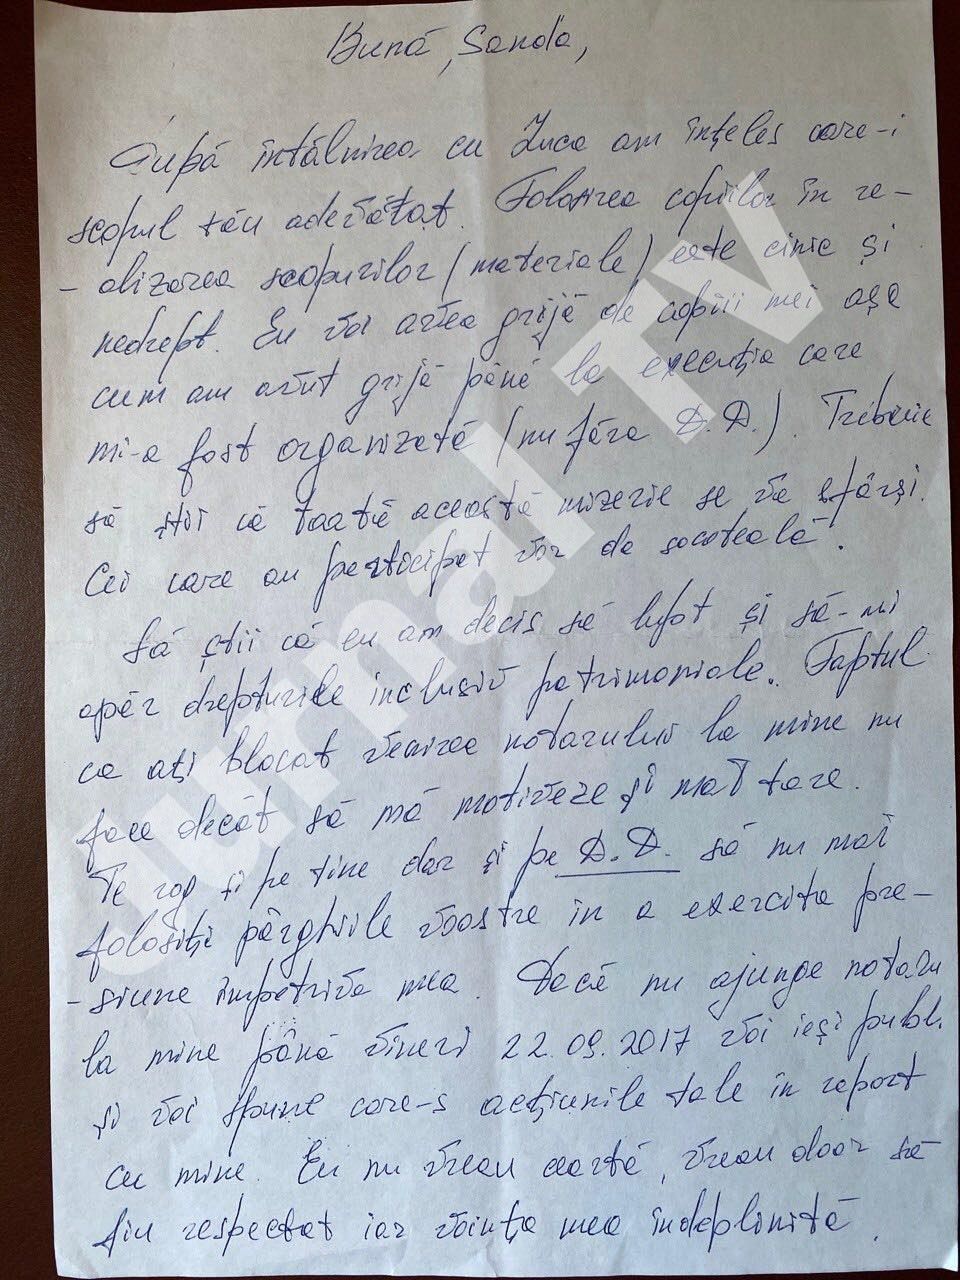 Bună, Sanda,
După întâlnirea cu Luca am înțeles care-i
scopul tău adevărat. Folosirea copiilor în re-
- alizarea scopurilor (materiale) este cinic și
nedrept. Eu voi avea grijă de copiii mei așa
cum am avut grijă până la execuția care
mi-a fost organizată (nu fără D.D.). Trebuie
să știi că toată această mizerie se va sfârși.
Cei care au participat vor da socoteală.
Să știi că eu am decis să lupt și să-mi
apăr drepturile inclusiv patrimoniale. Faptul
ca ați blocat venirea notarului la mine nu
face decât să mă motiveze și mai tare.
Te rog și pe tine dar și pe D.D. să nu mai
folosiți pârghiile voastre în a exercita pre-
- siune împotriva mea. Dacă nu ajunge notaru
la mine până vineri 22.09.2017 voi ieși publ.
și voi spune care-s acțiunile tale în raport
cu mine. Eu nu vreau ceartă, vreau doar să
fiu respectat iar voința mea îndeplinită.
Jurnal TV